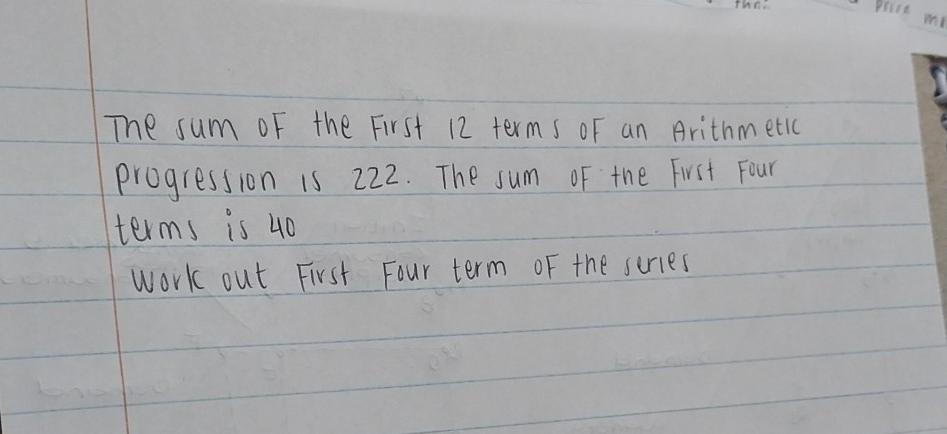 Price
The sum OF the First 12 terms OF an Arithmetic
progression is 222. The sum OF the First Four
terms is 40
Work out First Four term OF the series